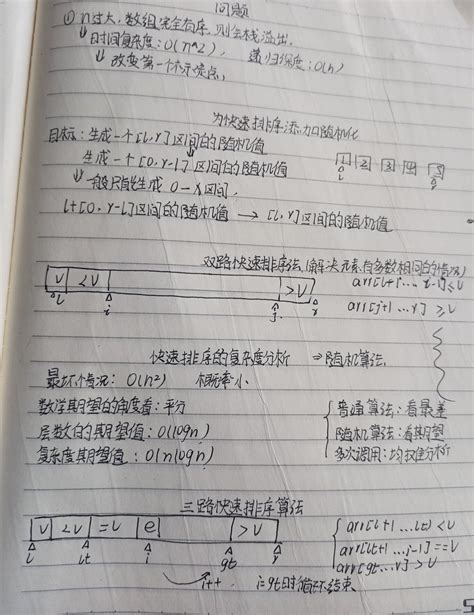 问题
① n过大，数组完全有序，则会栈溢出.
↓时间复杂度：O(n^2)， 递归深度：O(n)
↓ 改变第一个标定点，
为快速排序添加随机化
目标：生成一个[l,r]区间的随机值
生成一个[0,r-l]区间的随机值
1 2 3 4 5
l r
↓一般只能生成 0-x区间.
l+[0,r-l]区间的随机值 → [l,r]区间的随机值
双路快速排序法 (解决元素有多数相同的情况)
V <V >V
l i j r
arr[l+1...i-1]≤V
arr[j+1...r]≥V
快速排序的复杂度分析 ⇒随机算法.
最坏情况：O(n²) 概率小
数学期望的角度看：平分
层数的期望值：O(logn)
复杂度期望值：O(nlogn)
普通算法：看最差
随机算法：看期望
多次调用：均摊分析
三路快速排序算法
V <V =V e >V
l lt i gt r
i++ i=gt时循环结束.
arr[l+1...lt]<V
arr[lt+1...i-1]==V
arr[gt...r]>V